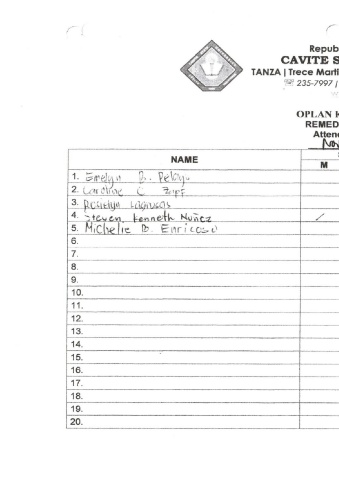 Repub
CAVITE S
TANZA | Trece Marti
235-7997 |
OPLAN
REMED
Atten
NAME
M
1. Emelyn B. Pelayo
2. Caroline C.
3. Roselyn
4. Steven Kenneth Nuñez /
5. Michelle D. Enricoso
6.
7.
8.
9.
10.
11.
12.
13.
14.
15.
16.
17.
18.
19.
20.